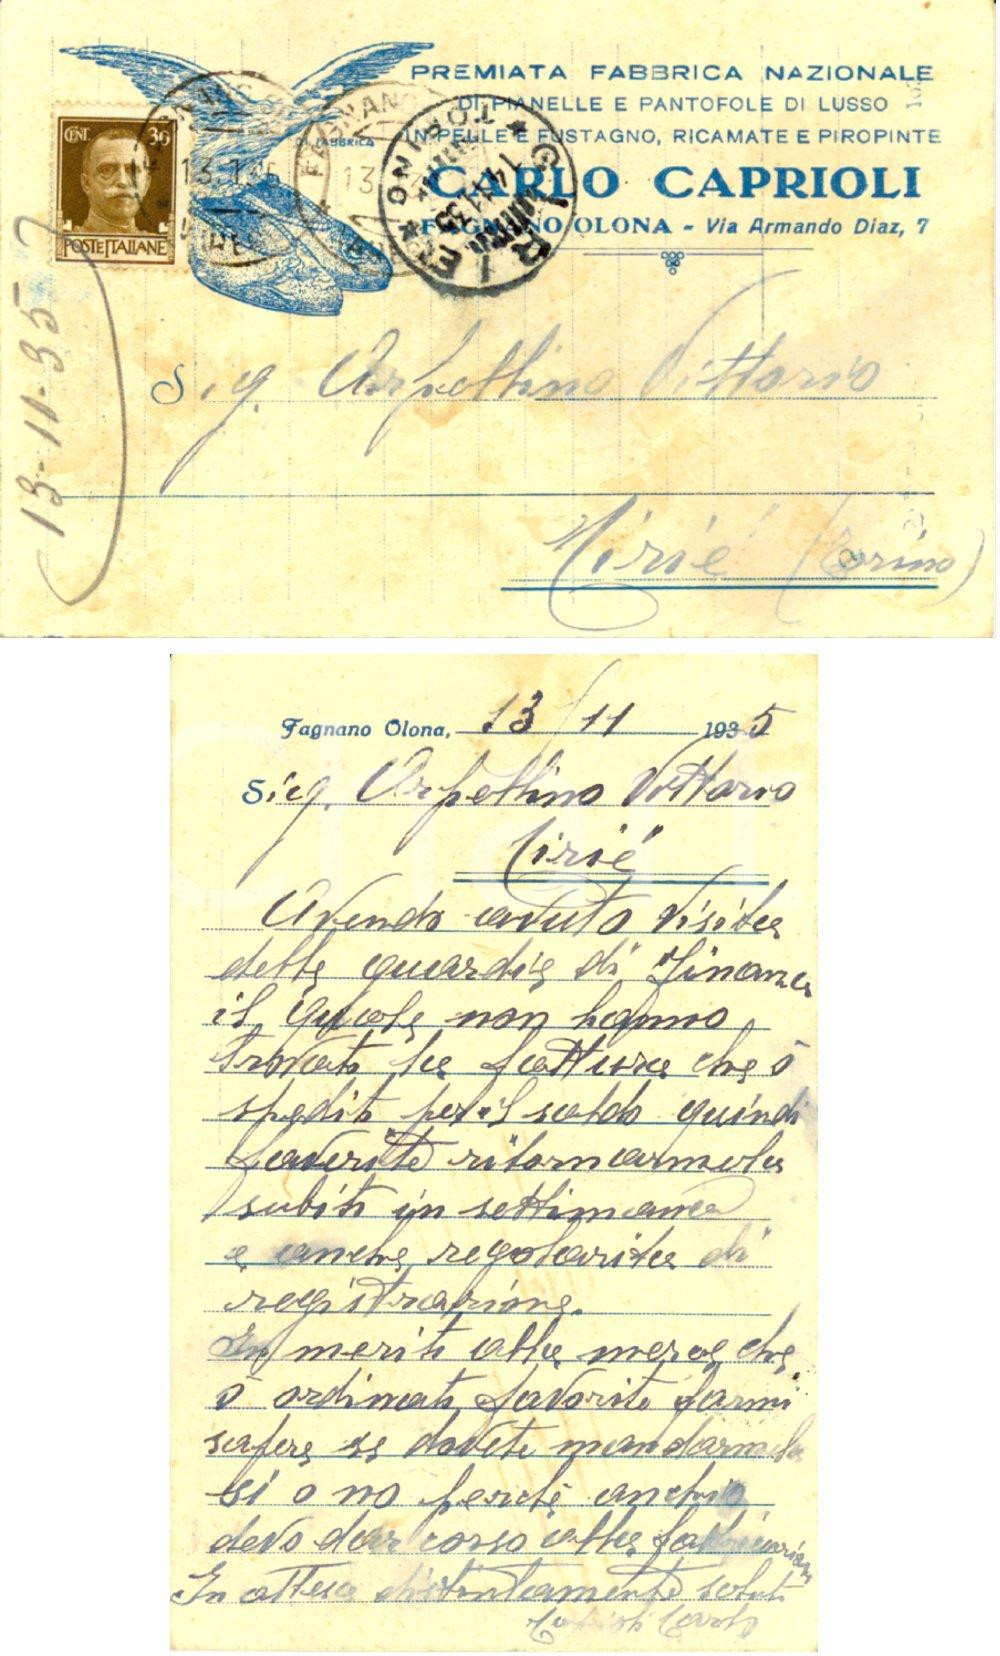 PREMIATA FABBRICA NAZIONALE
DI PIANELLE E PANTOFOLE DI LUSSO
IN PELLE E FUSTAGNO, RICAMATE E PIROPINTE
CARLO CAPRIOLI
FAGNANO OLONA - Via Armando Diaz, 7
CENT. 30
POSTE ITALIANE
FABBRICA
FAGNANO
13
CIRIE TORINO
13-11-35
Sig. Vittorio
Cirié (Torino)
Fagnano Olona, 13/11 1935
Sig. Vittorio
Cirié
Avendo avuto visita
della guardia di Finanza
il quale non hanno
trovato la fattura che ò
spedito per il saldo quindi
favorite ritornarmela
subito in settimana
e anche regolarita di
registrazione.
In merito alla merce che
ò ordinato favorite farmi
sapere se dovete mandarmela
si o no perchè anchio
devo dar corso alla fabbricazione
In attesa distintamente saluto
Caprioli Carlo